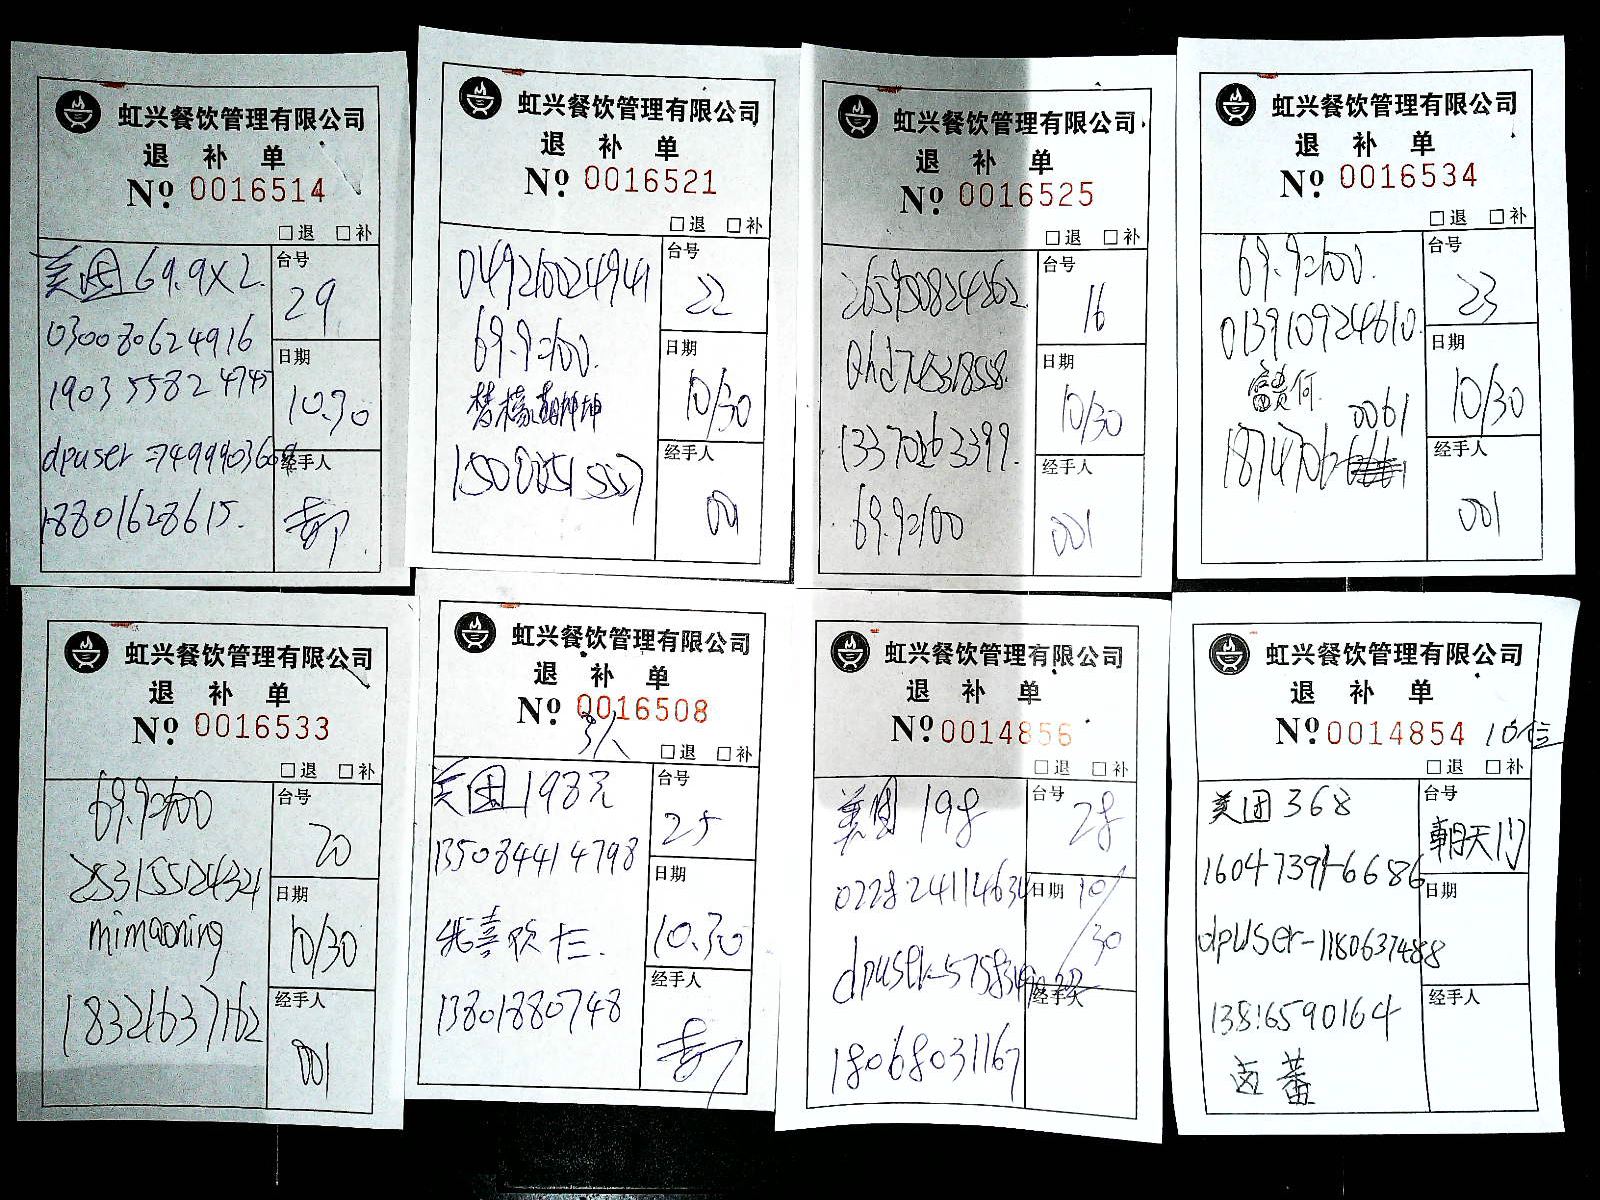 虹兴餐饮管理有限公司
退 补 单
No. 0016514
□退 □补
美团 69.9X2.
030080624916
190355824745
dpuser
18801628615.
台号
29
日期
10.30
经手人
虹兴餐饮管理有限公司
退 补 单
No. 0016521
□退 □补
049210024941
69.9=100.
台号
22
日期
10/30
经手人
001
虹兴餐饮管理有限公司
退 补 单
No. 0016525
□退 □补
265900824262
13370263399.
69.9=100
台号
16
日期
10/30
经手人
001
虹兴餐饮管理有限公司
退 补 单
No. 0016534
□退 □补
69.9=100.
013910924610
富贵何.
0061
1874706
台号
23
日期
10/30
经手人
001
虹兴餐饮管理有限公司
退 补 单
No. 0016533
□退 □补
69.9=100
253155124321
mimaoning
18321637162
台号
20
日期
10/30
经手人
001
虹兴餐饮管理有限公司
退 补 单
No. 0016508
3人
□退 □补
美团 198元
135084414798
我喜欢十三.
13801880748
台号
25
日期
10.30
经手人
虹兴餐饮管理有限公司
退 补 单
No. 0014856
□退 □补
美团 198
022824114634
18068031167
台号
28
日期
10/30
经手人
虹兴餐饮管理有限公司
退 补 单
No. 0014854 10位
□退 □补
美团 368
dpuser-1180637488
13816590164
台号
朝天门
日期
经手人